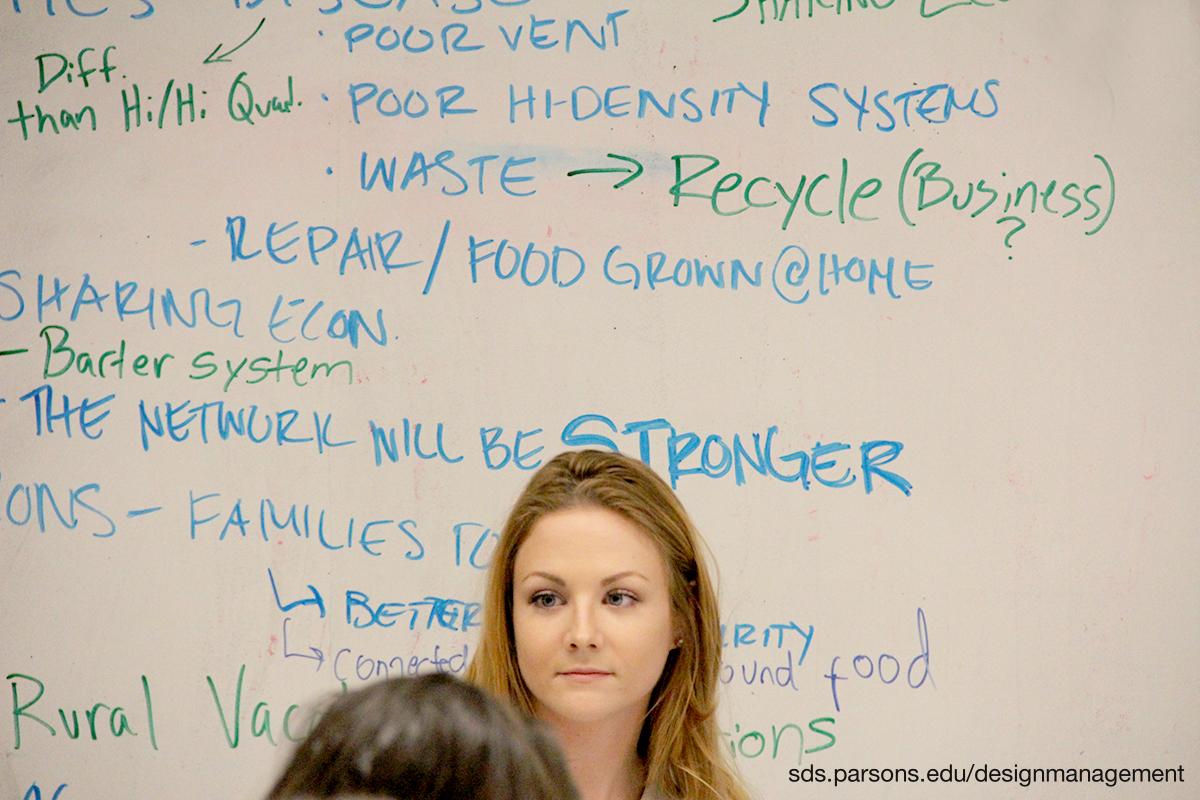 DISEASE
SHARING
Diff.
than Hi/Hi Quad.
· POOR VENT
· POOR HI-DENSITY SYSTEMS
· WASTE → Recycle (Business)
?
- REPAIR / FOOD GROWN @ HOME
SHARING ECON.
- Barter system
- THE NETWORK WILL BE STRONGER
ONS - FAMILIES TO
↳ BETTER RITY
↳ Connected ound food
Rural Vaca ions
sds.parsons.edu/designmanagement